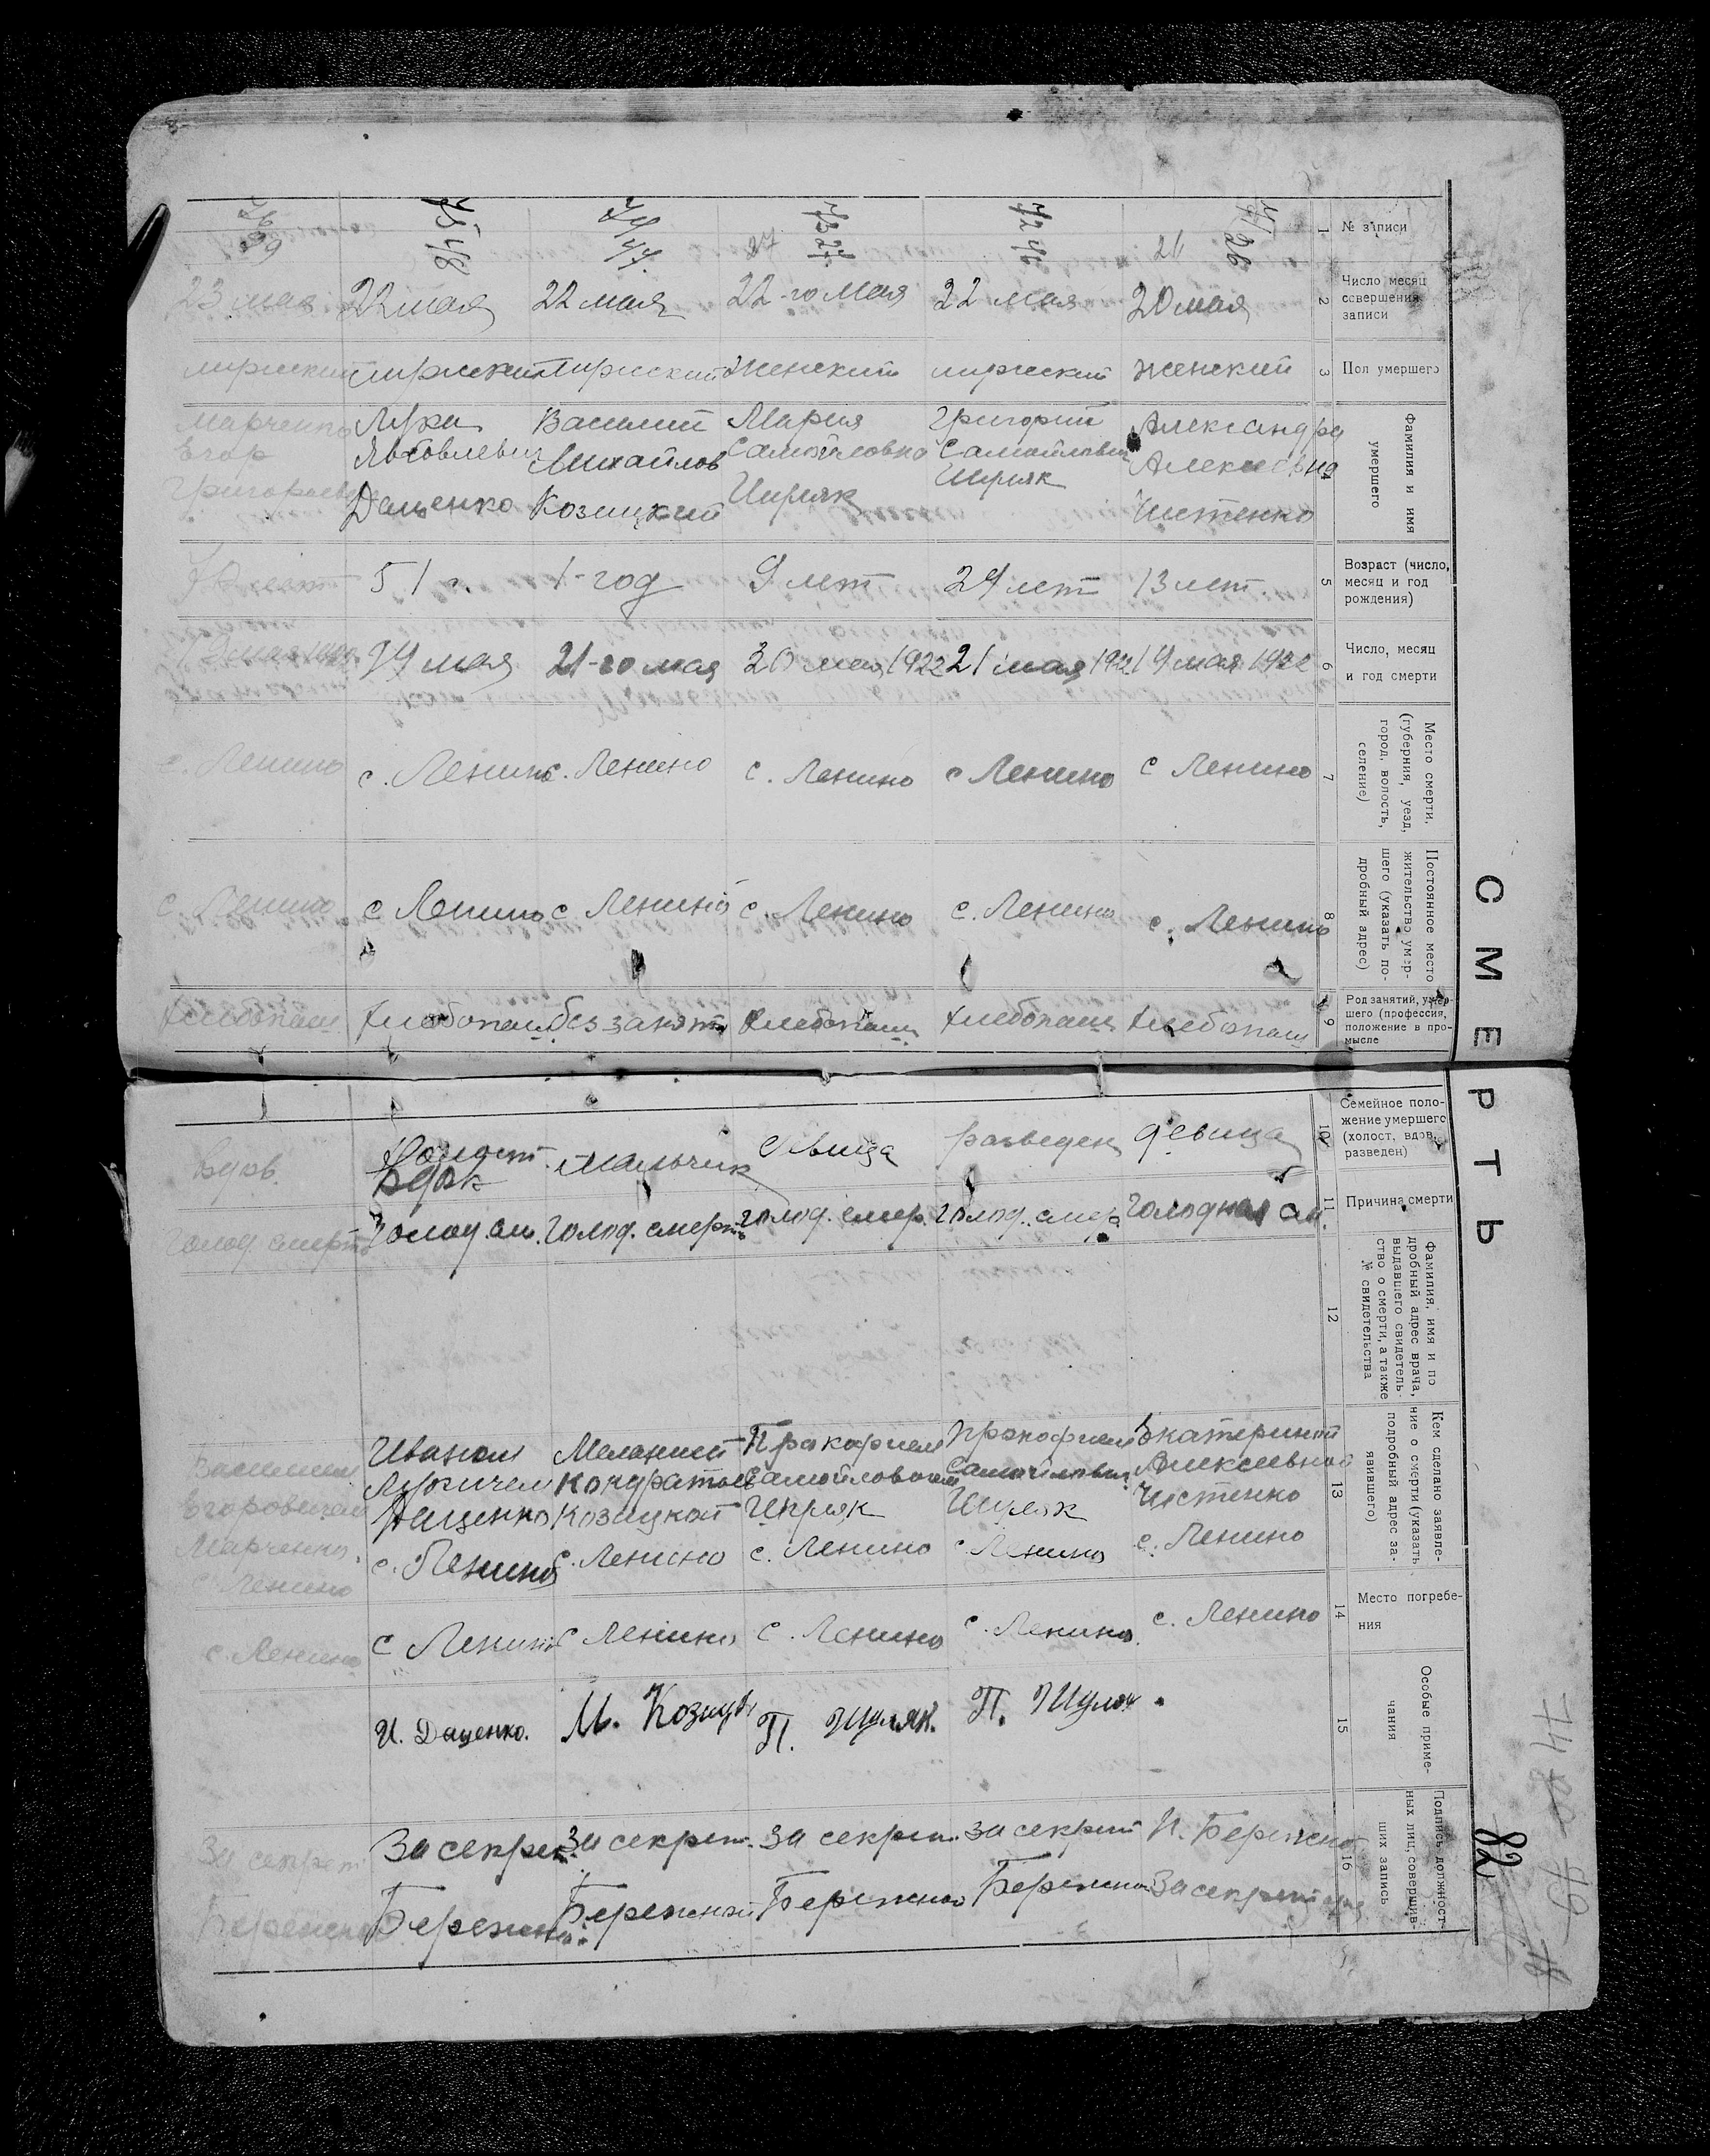 СМЕРТЬ
82
№ записи
1
Число месяц
совершения
записи
2
Пол умершего
3
Фамилия и имя
умершего
4
Возраст (число,
месяц и год
рождения)
5
Число, месяц
и год смерти
6
Место смерти,
(губерния, уезд,
город, волость,
селение)
7
Постоянное место
жительство умер-
шего (указать по-
дробный адрес)
8
Род занятий, умер-
шего (профессия,
положение в про-
мысле
9
Семейное поло-
жение умершего
(холост, вдов,
разведен)
10
Причина смерти
11
Фамилия, имя и по
дробный адрес врача,
выдавшего свидетель-
ство о смерти, а также
№ свидетельства
12
Кем сделано заявле-
ние о смерти (указать
подробный адрес за-
явившего)
13
Место погребе-
ния
14
Особые приме-
чания
15
Подпись должност-
ных лиц, совершив-
ших запись
16
26
20 мая
женский
Александра
Алексеевна
Чистенко
13 лет
19 мая 1922
с Ленино
с. Ленино
хлебопаш
девица
голодная см.
Екатериной
Алексеевной
Чистенко
с. Ленино
с. Ленино
И. Бережной
За секрет
72
22 мая
мужеский
Григорий
Самойлович
29 лет
21 мая 192
с Ленино
с. Ленино
хлебопаш
разведен
голод. смер
Прокофием
Самойлович
с. Ленино
с. Ленино
за секрет
Бережной
73 27
27
22-го мая
Женский
Мария
Самойловна
9 лет
20 мая 1922
с. Ленино
с. Ленино
хлебопаш
девица
голод. смер.
Прокофием
Самойловичем
с. Ленино
с. Ленино
П. Шуляк.
за секрет.
Бережной
74 47.
22 мая
Мужеский
Василий
Михайлов
Козицкий
1-год
21-го мая
с. Ленино
с Ленино
без занят
мальчик
голод. смерть
Меланией
Кондратьев
Козицкой
с. Ленино
с Ленино
За секрет.
Бережной
75 48
22 мая
мужеский
Лука
Яковлевич
Даценко
51 г.
19 мая
с. Ленино
с Ленино
хлебопаш
Вдов
Голод. см.
Иваном
Лукичем
Даценко
с. Ленино
с Ленино
И. Даценко.
За секрет
Бережной
76
23 мая
мужеский
Марченко
Егор
Григорьевич
с. Ленино
с. Ленино
хлебопаш
Вдов.
Голод. смерть
Василием
Егоровичем
Марченко.
с Ленино
с. Ленино
За секрет
Бережной